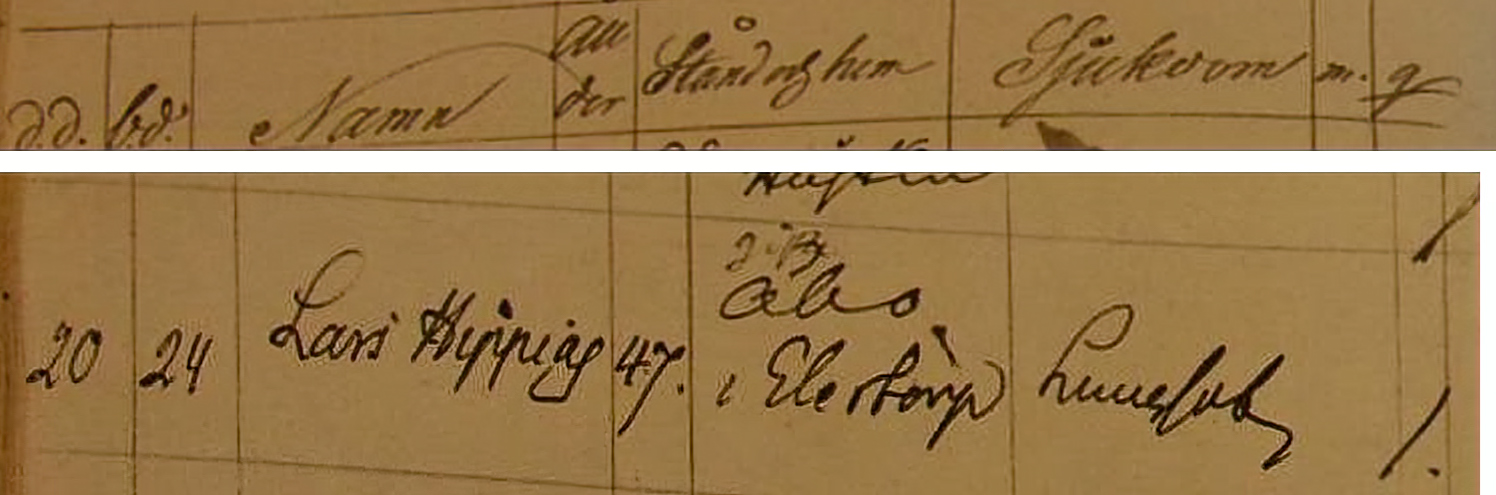 d.d. b.d. Namn Ål-
der Stånd och hem Sjukdom m. q
20 24 Lars Hipping 47. åbo
i Elestorp Lungsot 1.